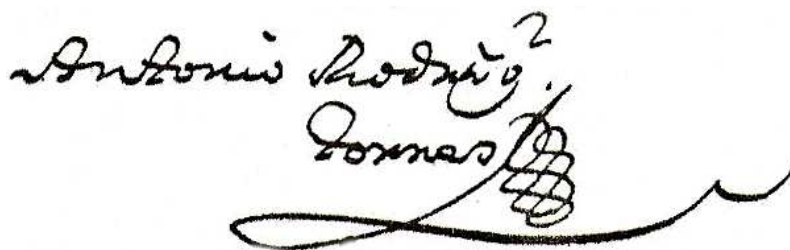 Antonio Rodrıg.z
torres